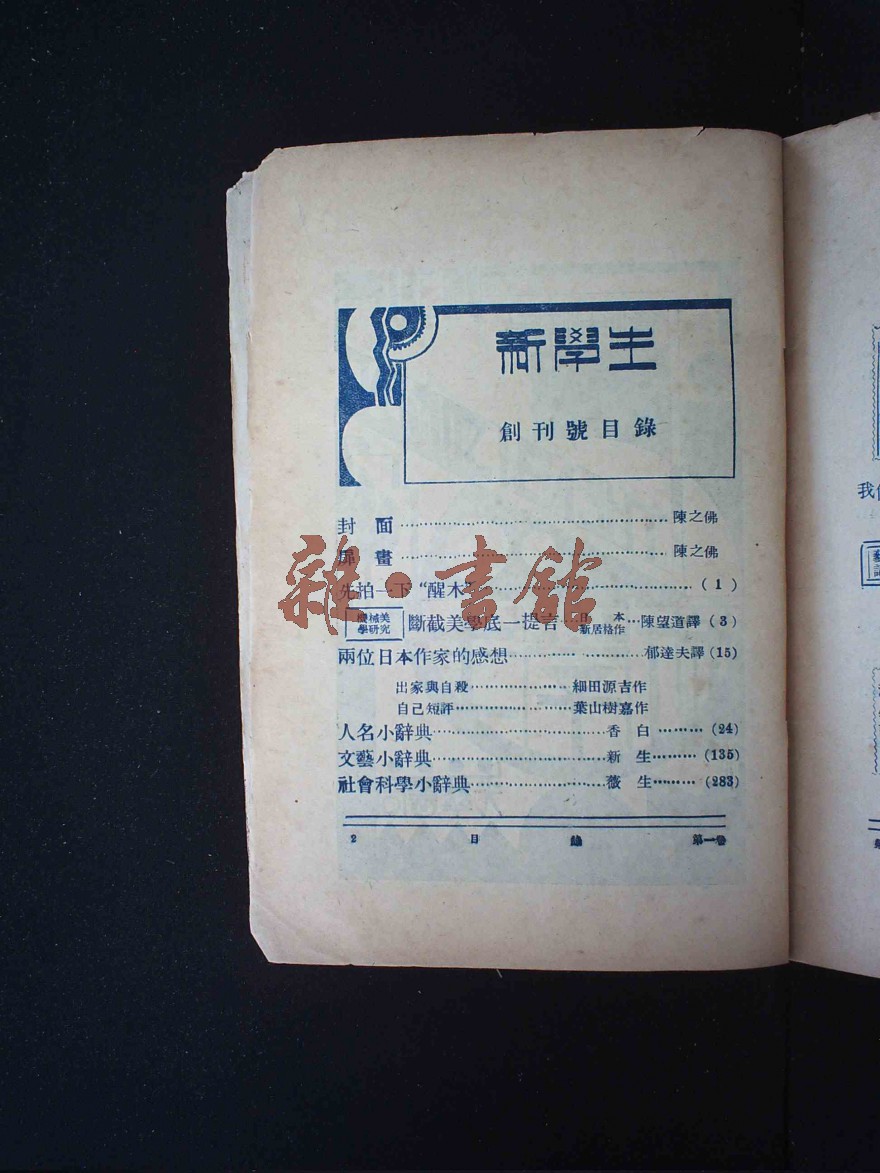 新學生
創刊號目錄
封面 陳之佛
扉畫 陳之佛
先拍一下“醒木” (1)
機械美學研究 斷截美學底一提言 日本新居格作 陳望道譯 (3)
兩位日本作家的感想 郁達夫譯 (15)
出家與自殺 細田源吉作
自己短評 葉山樹嘉作
人名小辭典 香白 (24)
文藝小辭典 新生 (135)
社會科學小辭典 薇生 (283)
2 目錄 第一卷
雜·書館
我們